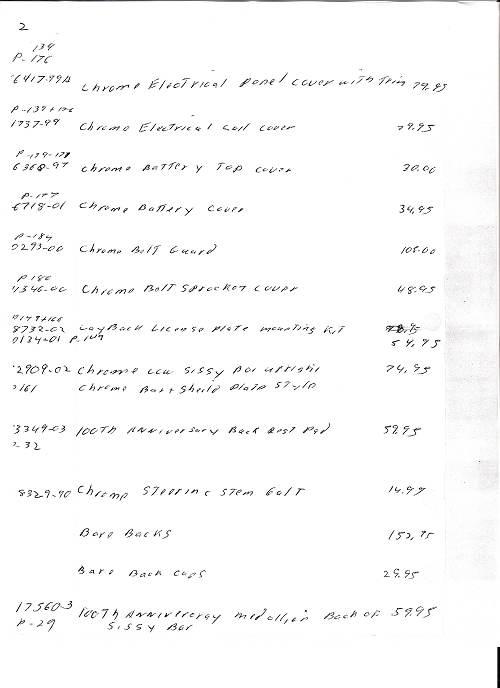 2
134
P-176
6417-99A Chrome Electrical Panel Cover with Trim 79.95
P-139+176
1737-99 Chrome Electrical Coil Cover 79.95
P-179-178
6368-97 Chrome Battery Top Cover 30.00
P-177
6718-01 Chrome Battery Cover 34,95
P-184
0293-00 Chrome Belt Guard 105.00
P 180
1346-00 Chrome Belt Sprocket Cover 48.95
8732-02 LayBack License Plate mounting Kit
0134-01 P.149 54,95
2909-02 Chrome Low Sissy Bar upright 74,95
2161 Chrome Bar + Sheild Plate Style
3349-03 100Th Anniversary Back Rest Pad 59.95
232
8329-90 Chrome Steering Stem Bolt 14.99
Bare Backs 152,95
Bare Back Caps 29.95
17560-3 100Th Anniverery medallion Back of 59.95
P-29 Sissy Bar